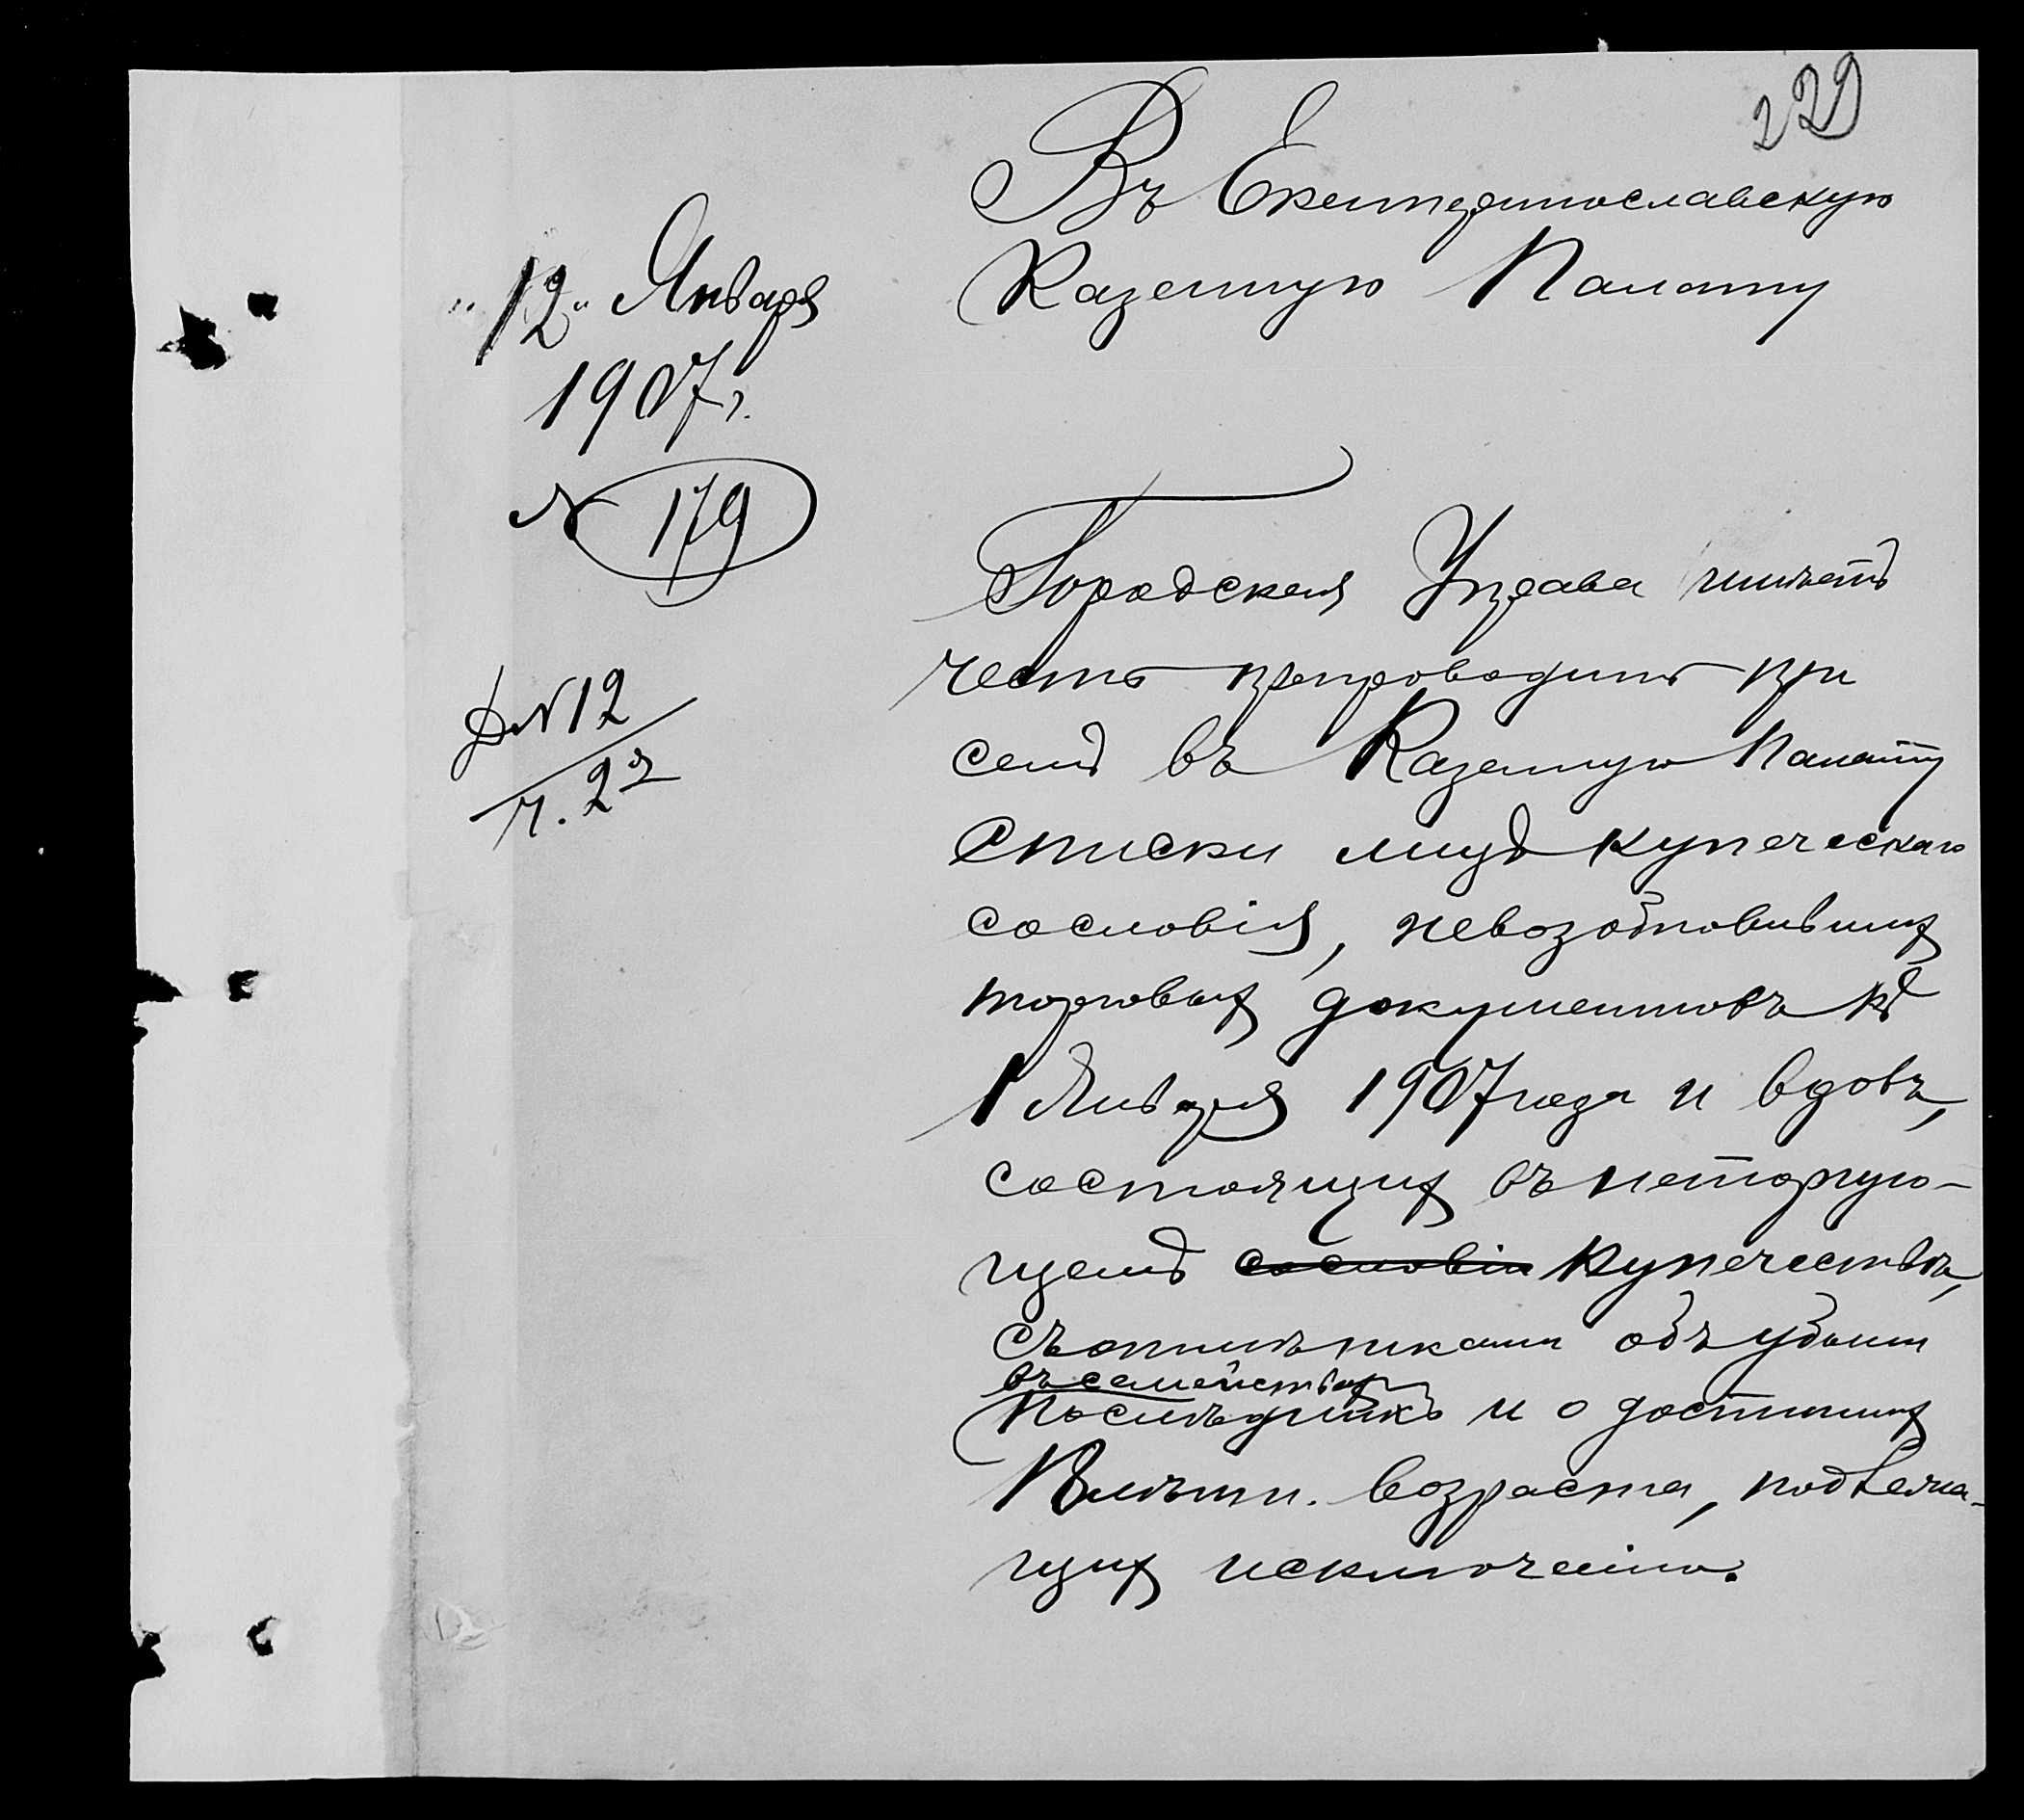 229
Въ Екатеринославскую
Казенную Палату
"12" Января
1907 г.
№ 179
Д№ 12
ч. 2я
Городская Управа имѣетъ
честь препроводить при
семъ въ Казенную Палату
списки лицъ купеческаго
сословія, невозобновившихъ
торговыхъ документовъ къ
1 Января 1907 года и вдовъ,
состоящихъ въ неторгую-
щемъ сословіи купечествѣ,
съ отмѣтками объ убыли
въ семействахъ
послѣднихъ и о достигших
лѣтн. возраста, подлежа-
щихъ исключенію.